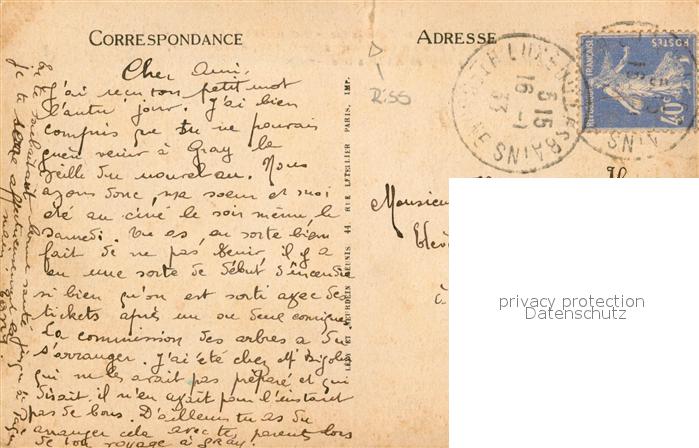 CORRESPONDANCE
ADRESSE
Cher Ami,
J'ai reçu ton petit mot
l'autre jour. J'ai bien
compris que tu ne pouvais
guère venir à Gray la
veille du nouvel an. Nous
avons donc, ma soeur et moi
été au ciné le soir même, le
samedi. Tu as, en sorte bien
fait de ne pas venir, il y a
eu une sorte de début d'incendie
si bien qu'on est sorti avec des
tickets après un ou deux comiques.
La commission des arbres a dû
s'arranger. J'ai été chez Mr
qui ne les avait pas préparé et qui
disait il n'en avait pour l'instant
pas de bons. D'ailleurs tu as dû
arranger cela avec tes parents lors
de ton voyage à Gray.
En te souhaitant bonne santé jusqu'à
je te serre affectueusement la
main.
LEVY ET NEURDEIN RÉUNIS 44 RUE LETELLIER PARIS, IMP.
RISS
LUXEUIL LES BAINS
5 15
16 -1
33
POSTES
RÉPUBLIQUE FRANÇAISE
40c
Monsieur
Elève
à
privacy protection
Datenschutz